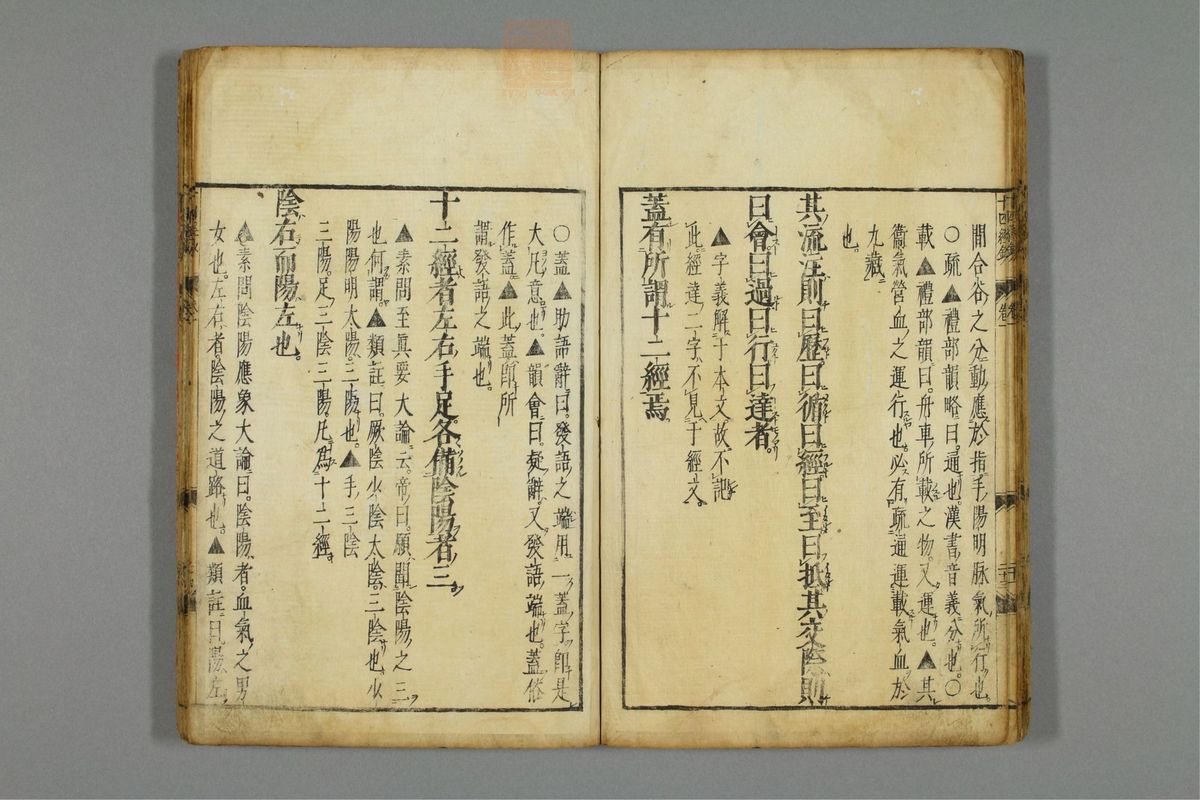 間合谷之分動應於指手陽明脉氣所行也
○疏▲禮部韻略曰通也。漢書音義分也。○
載▲禮部韻曰。舟車所載之物。又運也。▲其
衞氣營血之運行也。必有疏通運載氣血於
九藏
也。
其流注則曰歷曰循曰經曰至曰抵其交際則
曰會曰過曰行曰達者
▲字義解于本文故不記
此經達二字不見于經文。
蓋有所謂十二經焉
○蓋▲助語辭曰。發語之端用一蓋字即是
大凡意也。▲韻會曰。疑辭又。發語端也。蓋俗
作盖▲此蓋即所
謂發語之端也。
十二經者左右手足各備陰陽者三
▲素問至眞要大論云。帝曰。願聞陰陽之三
也何謂。▲類註曰。厥陰少陰太陰。三陰也。少
陽陽明太陽。三陽也。▲手三陰
三陽。足三陰三陽。凡為十二經
陰右而陽左也。
▲素問陰陽應象大論曰。陰陽者。血氣之男
女也。左右者陰陽之道路也。▲類註曰。陽左